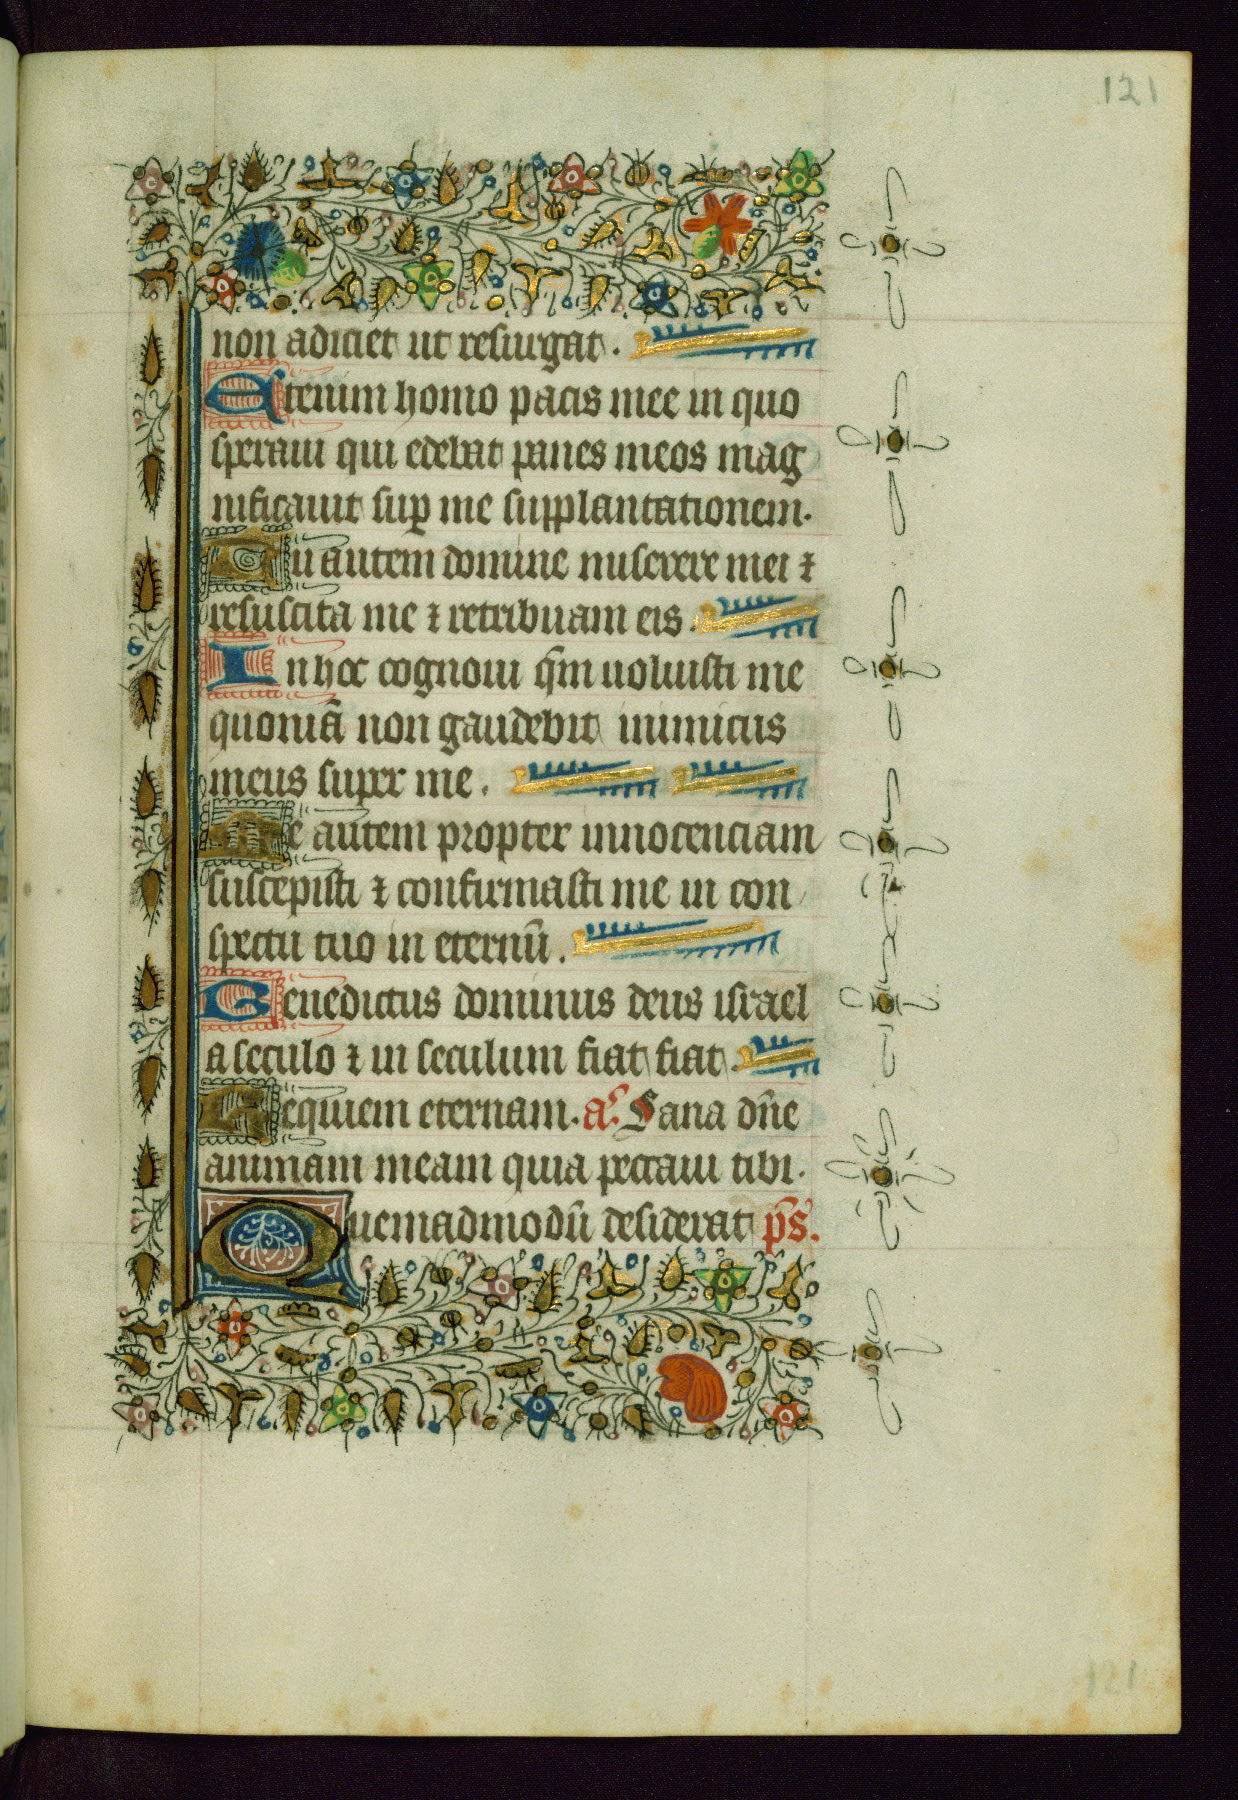 121
non adiciet ut resurgat.
Etenim homo pacis mee in quo
speraui qui edebat panes meos mag
nificauit sup̱ me supplantationem.
Tu autem domine miserere mei ⁊
resuscita me ⁊ retribuam eis.
In hoc cognoui qm̄ uoluisti me
quoniā non gaudebit inimicus
meus super me.
Me autem propter innocenciam
suscepisti ⁊ confirmasti me in con
spectu tuo in eternū.
Benedictus dominus deus israel
a seculo ⁊ in seculum fiat fiat.
Requiem eternam. a. Sana dn̄e
animam meam quia peccaui tibi.
Quemadmodū desiderat ps̄.
121